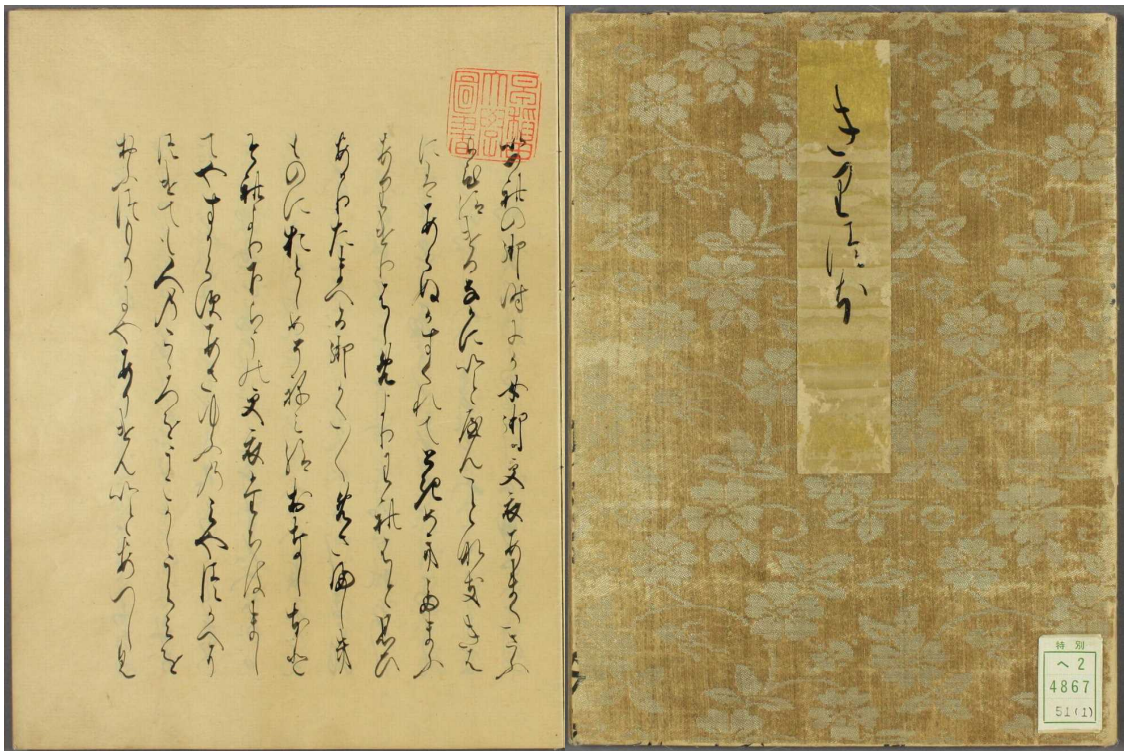 きりつほ
特別
ヘ2
4867
51(1)
早稲田大學圖書
いつれの御時にか女御更衣あまたさふ
らひ給けるなかにいとやんことなききは
にはあらぬかすくれてときめきたまふ
ありけりはしめよりわれはと思ひ
あかりたまへる御かた〱めさましき
ものにおとしめそねみ給おなしほと
それより下らうの更衣たちはまし
てやすからすあさゆふのみやつかへに
つけても人のこゝろをうこかしうらみを
おふつもりにやありけんいとあつしく